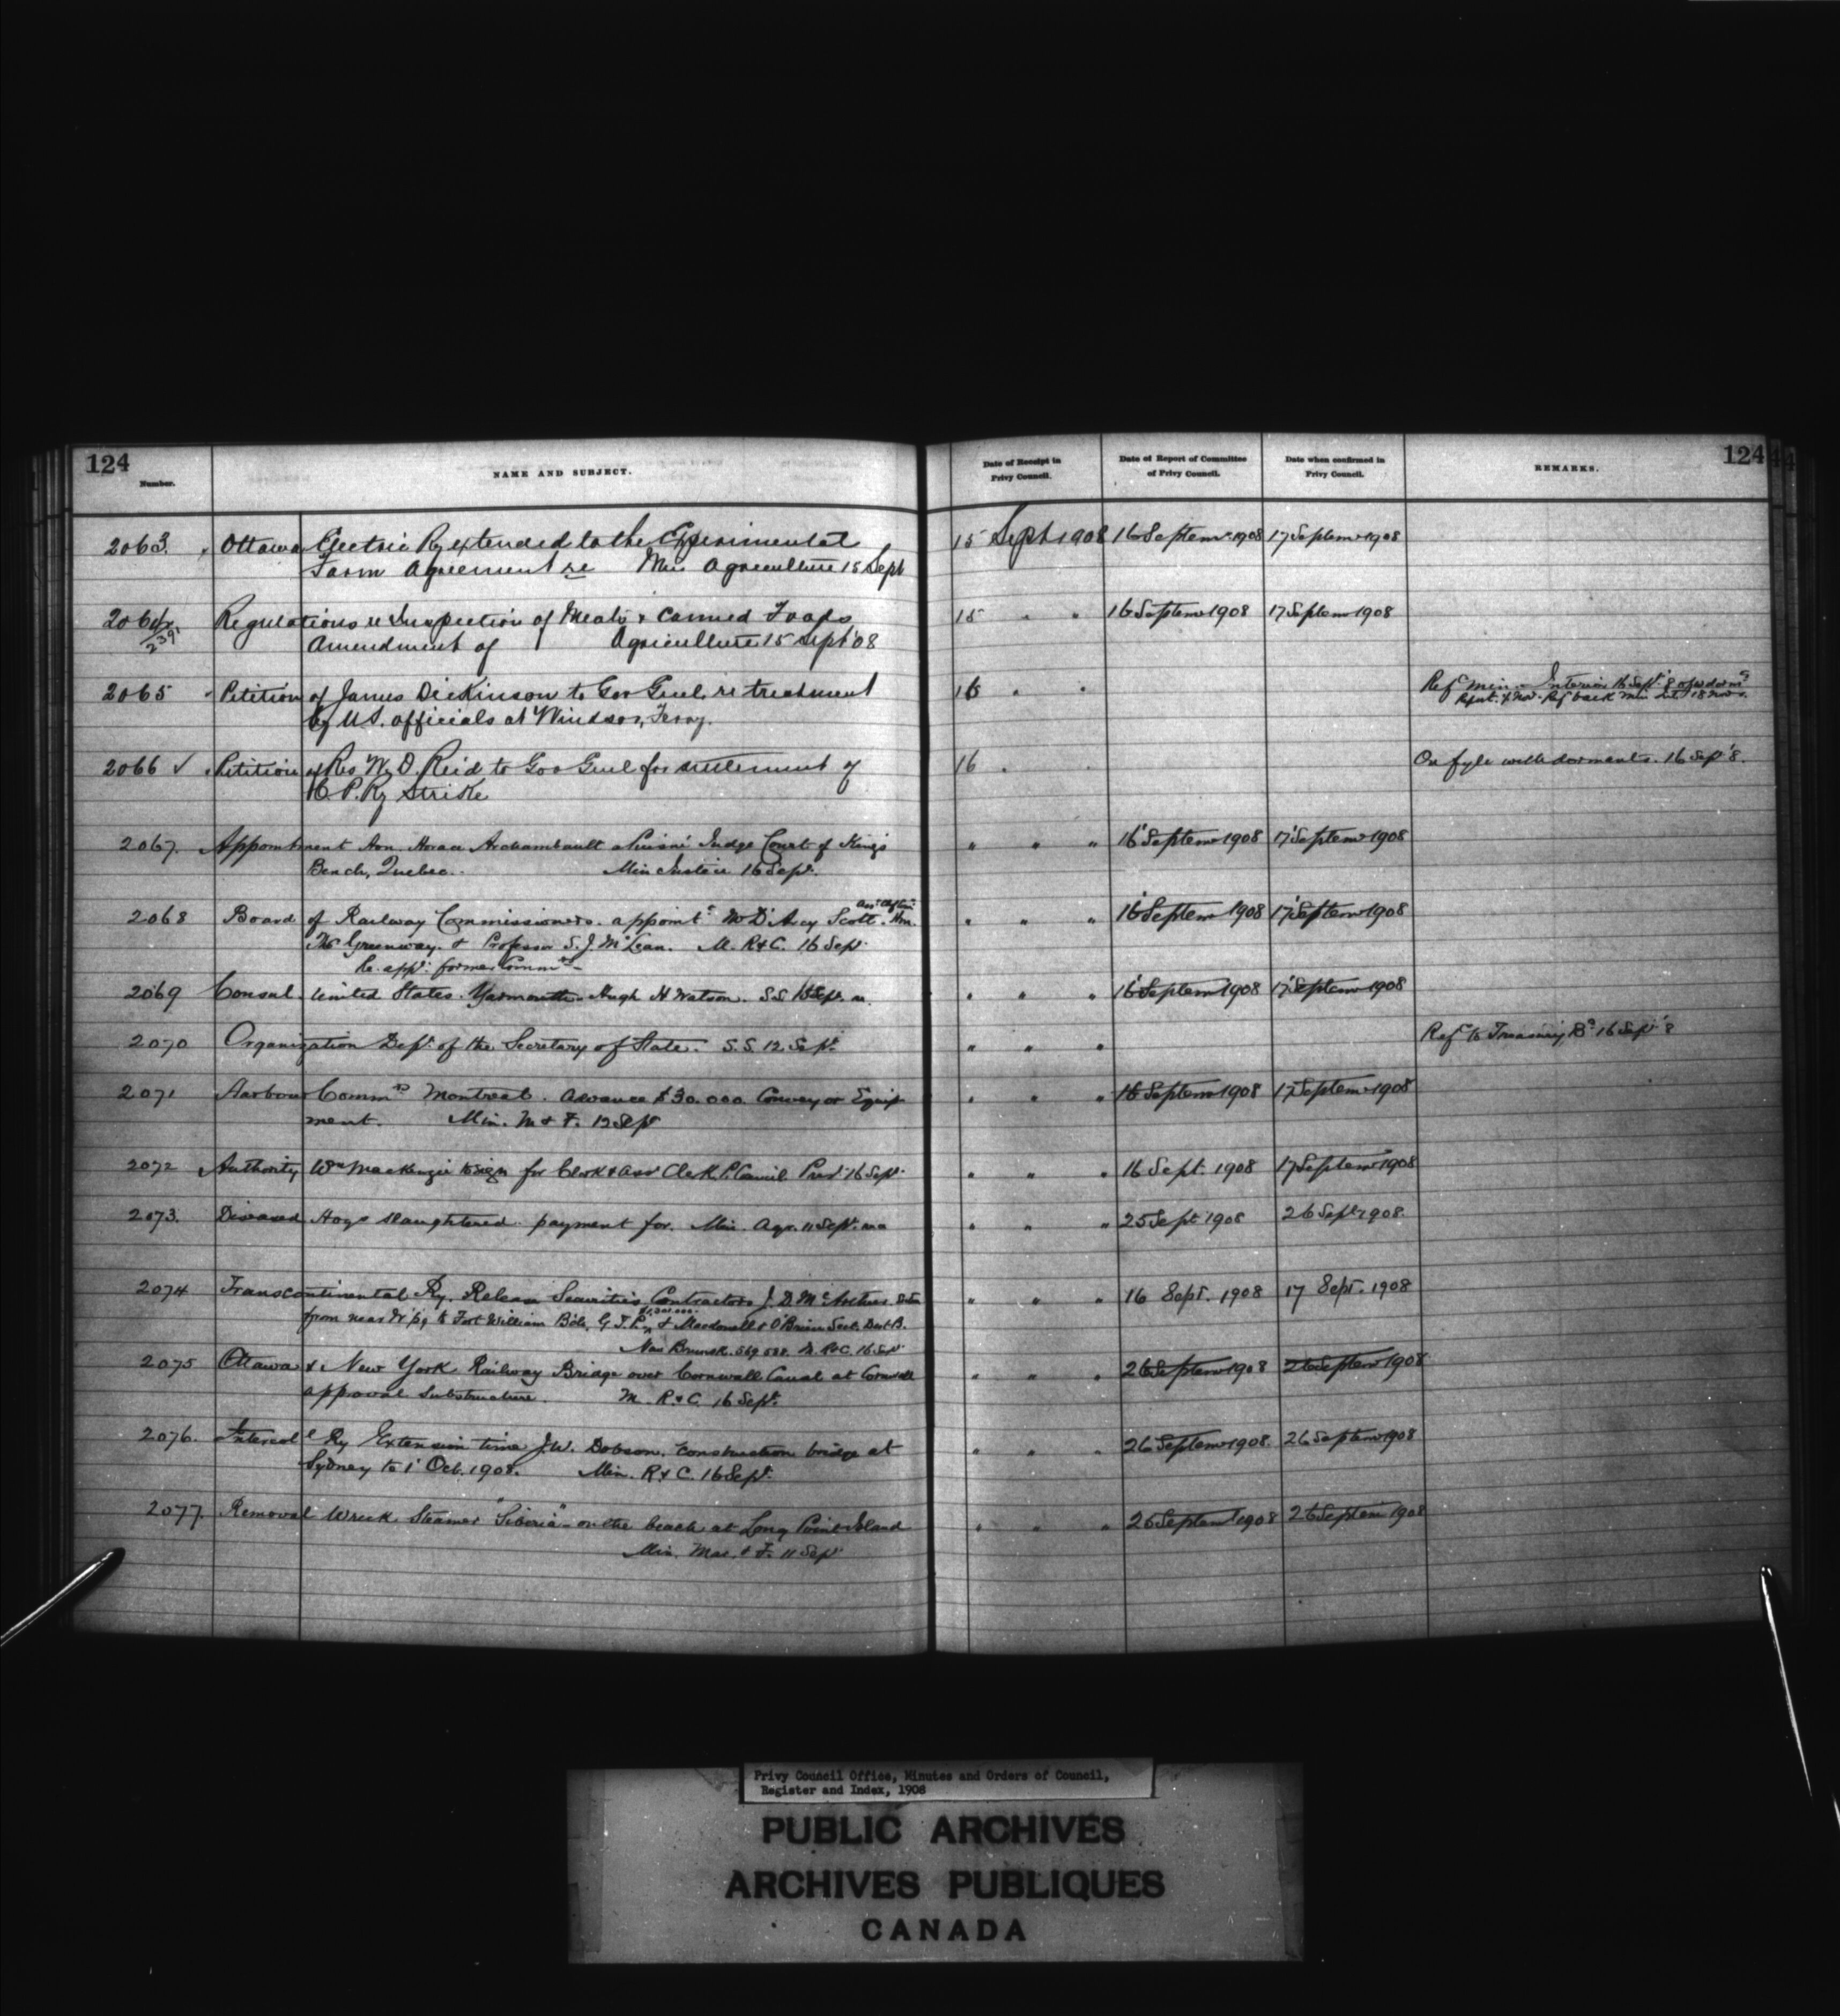 124
Number.
NAME AND SUBJECT.
Date of Receipt in
Privy Council.
Date of Report of Committee
of Privy Council.
Date when confirmed in
Privy Council.
REMARKS.
124
2063. Ottawa Electric Ry extended to the Experimental 15 Sept 1908 16 Septemr 1908 17 Septemr 1908
Farm Agreement re Min Agriculture 15 Sept
2064 Regulations re Inspection of Meats & Canned Foods 15 " " 16 Septemr 1908 17 Septemr 1908
2391 Amendment of Agriculture 15 Sept 08
2065 Petition of James Dickinson to Gov Genl. re treatment 16 " " Refd Min. Interior 16 Sept. '8
by U.S. officials at Windsor, Ferry. Rept. 4 Nov. Ref back Min Int. 18 Nov
2066 ✓ Petition of Rev W. D. Reid to Gov Genl for settlement of 16 " " On fyle with dormants. 16 Sep '8.
C. P. Ry Strike
2067. Appointment Hon. Horace Archambault Puisné Judge Court of King's " " " 16 Septemr 1908 17 Septemr 1908
Bench, Quebec. Min Justice 16 Sept.
2068 Board of Railway Commissioners. appointt Mr D'Arcy Scott. Asst Chf Com. Hon. " " " 16 Septemr 1908 17 Septemr 1908
Thos Greenway. & Professor S. J. McLean. M. R & C. 16 Sept.
Re. appt. former Commrs
2069 Consul. United States. Yarmouth. Hugh H Watson. S.S. Sept. " " " 16 Septemr 1908 17 Septemr 1908
2070 Organization Dept. of the Secretary of State. S.S. 12 Sept. " " " Refd to Treasury Bd 16 Sept '8
2071 Harbour Commrs Montreal. Advance $30.000 Conveyor Equip " " " 16 Septemr 1908 17 Septemr 1908
ment. Min. M & F. 12 Sept
2072 Authority Wm Mackenzie to sign for Clerk & Asst Clerk P. Council Presdt 16 Sept. " " " 16 Sept. 1908 17 Septemr 1908
2073. Diseased Hogs slaughtered. payment for. Min. Agr. 11 Sept. " " " 25 Sept 1908 26 Sept 1908.
2074 Transcontinental Ry. Release Securities Contractors J. D. McArthur " " " 16 Sept. 1908 17 Sept. 1908
from near W'peg to Fort William Bch. G. T. P. & Macdonell & O'Brien Sect. Dist B.
New Brunsk. 569.588. M. R & C. 16 Sept
2075 Ottawa & New York Railway Bridge over Cornwall Canal at Cornwall " " " 26 Septemr 1908 26 Septemr 1908
approval substructure. M. R & C. 16 Sept.
2076. Intercoll Ry Extension time J. W. Dobson. construction bridge at " " " 26 Septemr 1908 26 Septemr 1908
Sydney to 1 Oct. 1908. Min. R & C. 16 Sept.
2077. Removal Wreck Steamer "Siberia" on the beach at Long Point Island " " " 26 Septemr 1908 26 Septemr 1908
Min. Mar. & F. 11 Sept
Privy Council Office, Minutes and Orders of Council,
Register and Index, 1908
PUBLIC ARCHIVES
ARCHIVES PUBLIQUES
CANADA